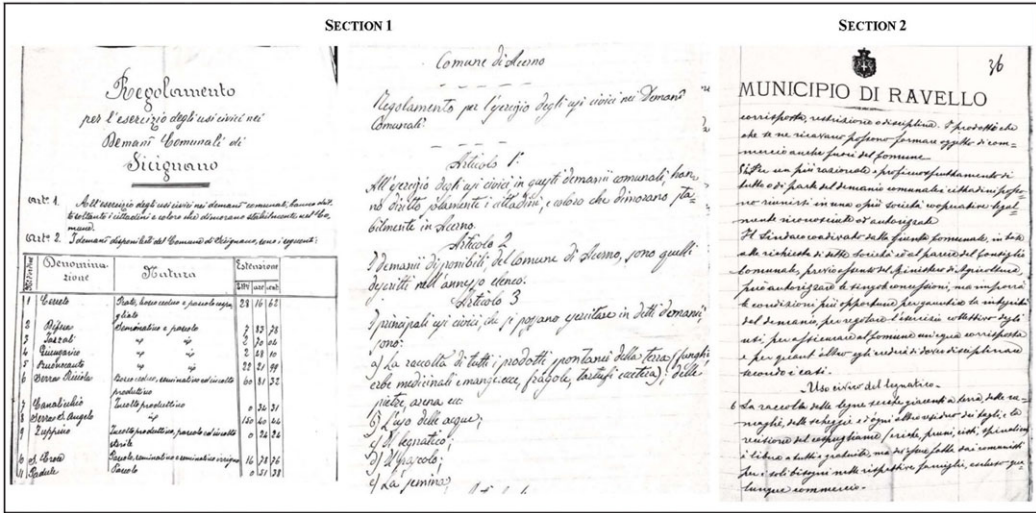 SECTION 1
Regolamento
per l'esercizio degli usi civici nei
Demanî Comunali di
Sicignano
Art. 1. All'esercizio degli usi civici nei demanî comunali, hanno dirit-
to soltanto i cittadini e coloro che dimorano stabilmente nel Co-
mune.
Art. 2. I demanî disponibili del Comune di Sicignano, sono i seguenti:
Denomina-
zione
Natura
Estensione
1 Cerreto
28 16 62
2
Seminativo e pascolo
7 83 78
3
2 70 04
4
2 28 10
5
22 21 99
6
60 81 32
produttivo
7
Incolto produttivo
0 34 31
8 Serra S. Angelo
150 40 44
9 Zuppino
Incolto produttivo, pascolo ed incolto
sterile
0 24 24
10
16 78 76
11 Padule
Pascolo
0 51 38
Comune di Acerno
Regolamento per l'esercizio degli usi civici nei Demanî
Comunali.
Articolo 1°
All'esercizio degli usi civici in questi demanii comunali, han-
no diritto solamente i cittadini, e coloro che dimorano sta-
bilmente in Acerno.
Articolo 2
I demanii disponibili, del Comune di Acerno, sono quelli
descritti nell'annesso elenco.
Articolo 3
I principali usi civici, che si possano esercitare in detti demanî,
sono:
a) La raccolta di tutti i prodotti spontanei della terra (funghi
erbe medicinali e mangerecce, fragole, tartufi eccetera); delle
pietre, arena ecc
b) L'uso delle acque;
c) Il legnatico;
d) Il pascolo;
e) La semina;
SECTION 2
36
MUNICIPIO DI RAVELLO
corrisposta, restrizione o disciplina. I prodotti che
che se ne ricavano possono formare oggetto di com-
mercio anche fuori del Comune
5. Per un più razionale e proficuo sfruttamento di
tutto o di parte del demanio comunale i cittadini posso-
no riunirsi in una o più società cooperative legal-
mente riconosciute ed autorizzate
Il Sindaco coadiuvato dalla giunta comunale, in base
alle richieste di dette società ed al parere del Consiglio
Comunale, previo assenso del Ministero di Agricoltura,
può autorizzare le singole concessioni, ma imporrà
le condizioni più opportune per garantire la integrità
del demanio, per regolare l'esercizio collettivo degli
usi, per assicurare al Comune un'equa corrisposta
e per quant'altro egli crederà di dover disciplinare
secondo i casi.
Uso civico del legnatico.
6 La raccolta delle legna secche giacenti a terra, delle ra-
maglie, delle schegge e d'ogni altro residuo dei tagli, e la
recisione del cespugliame
è libera a tutti e gratuita, ma da farsi fatta dai comunisti
per i soli bisogni delle rispettive famiglie, escluso qua-
lunque commercio.